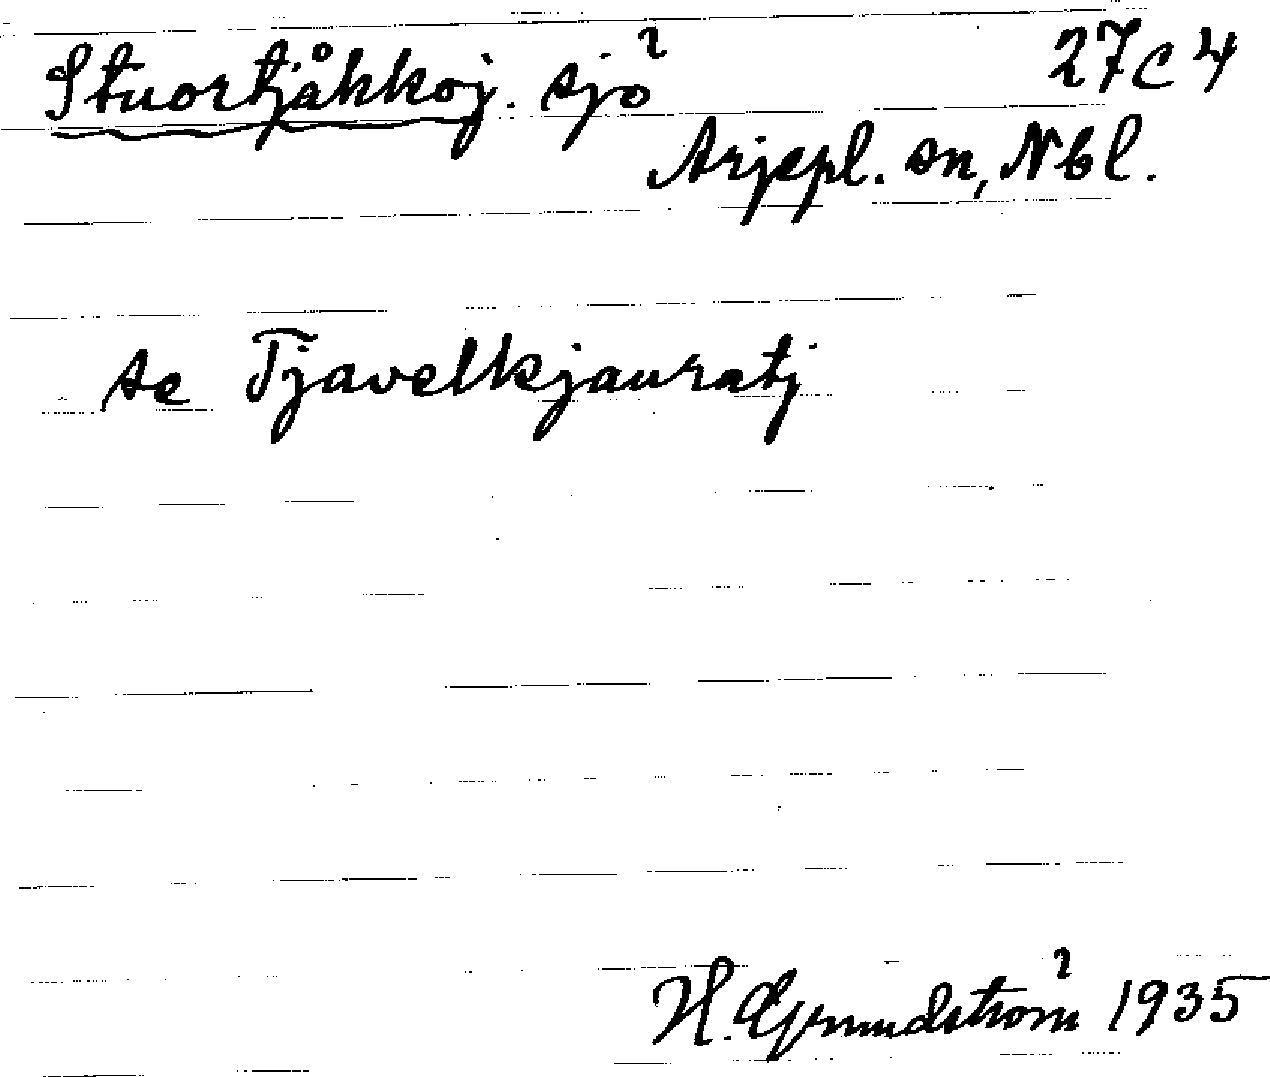 Stuortjåkkoj. sjö 27C4
Arjepl. sn, Nbl.
se Tjavelkjauratj
H. Grundström 1935